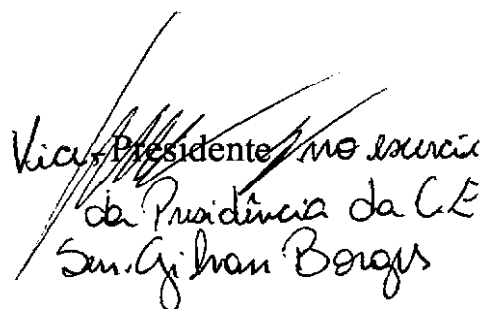 Vice-Presidente no exercíci
da Presidência da C.E
Sen. Gilvan Borges